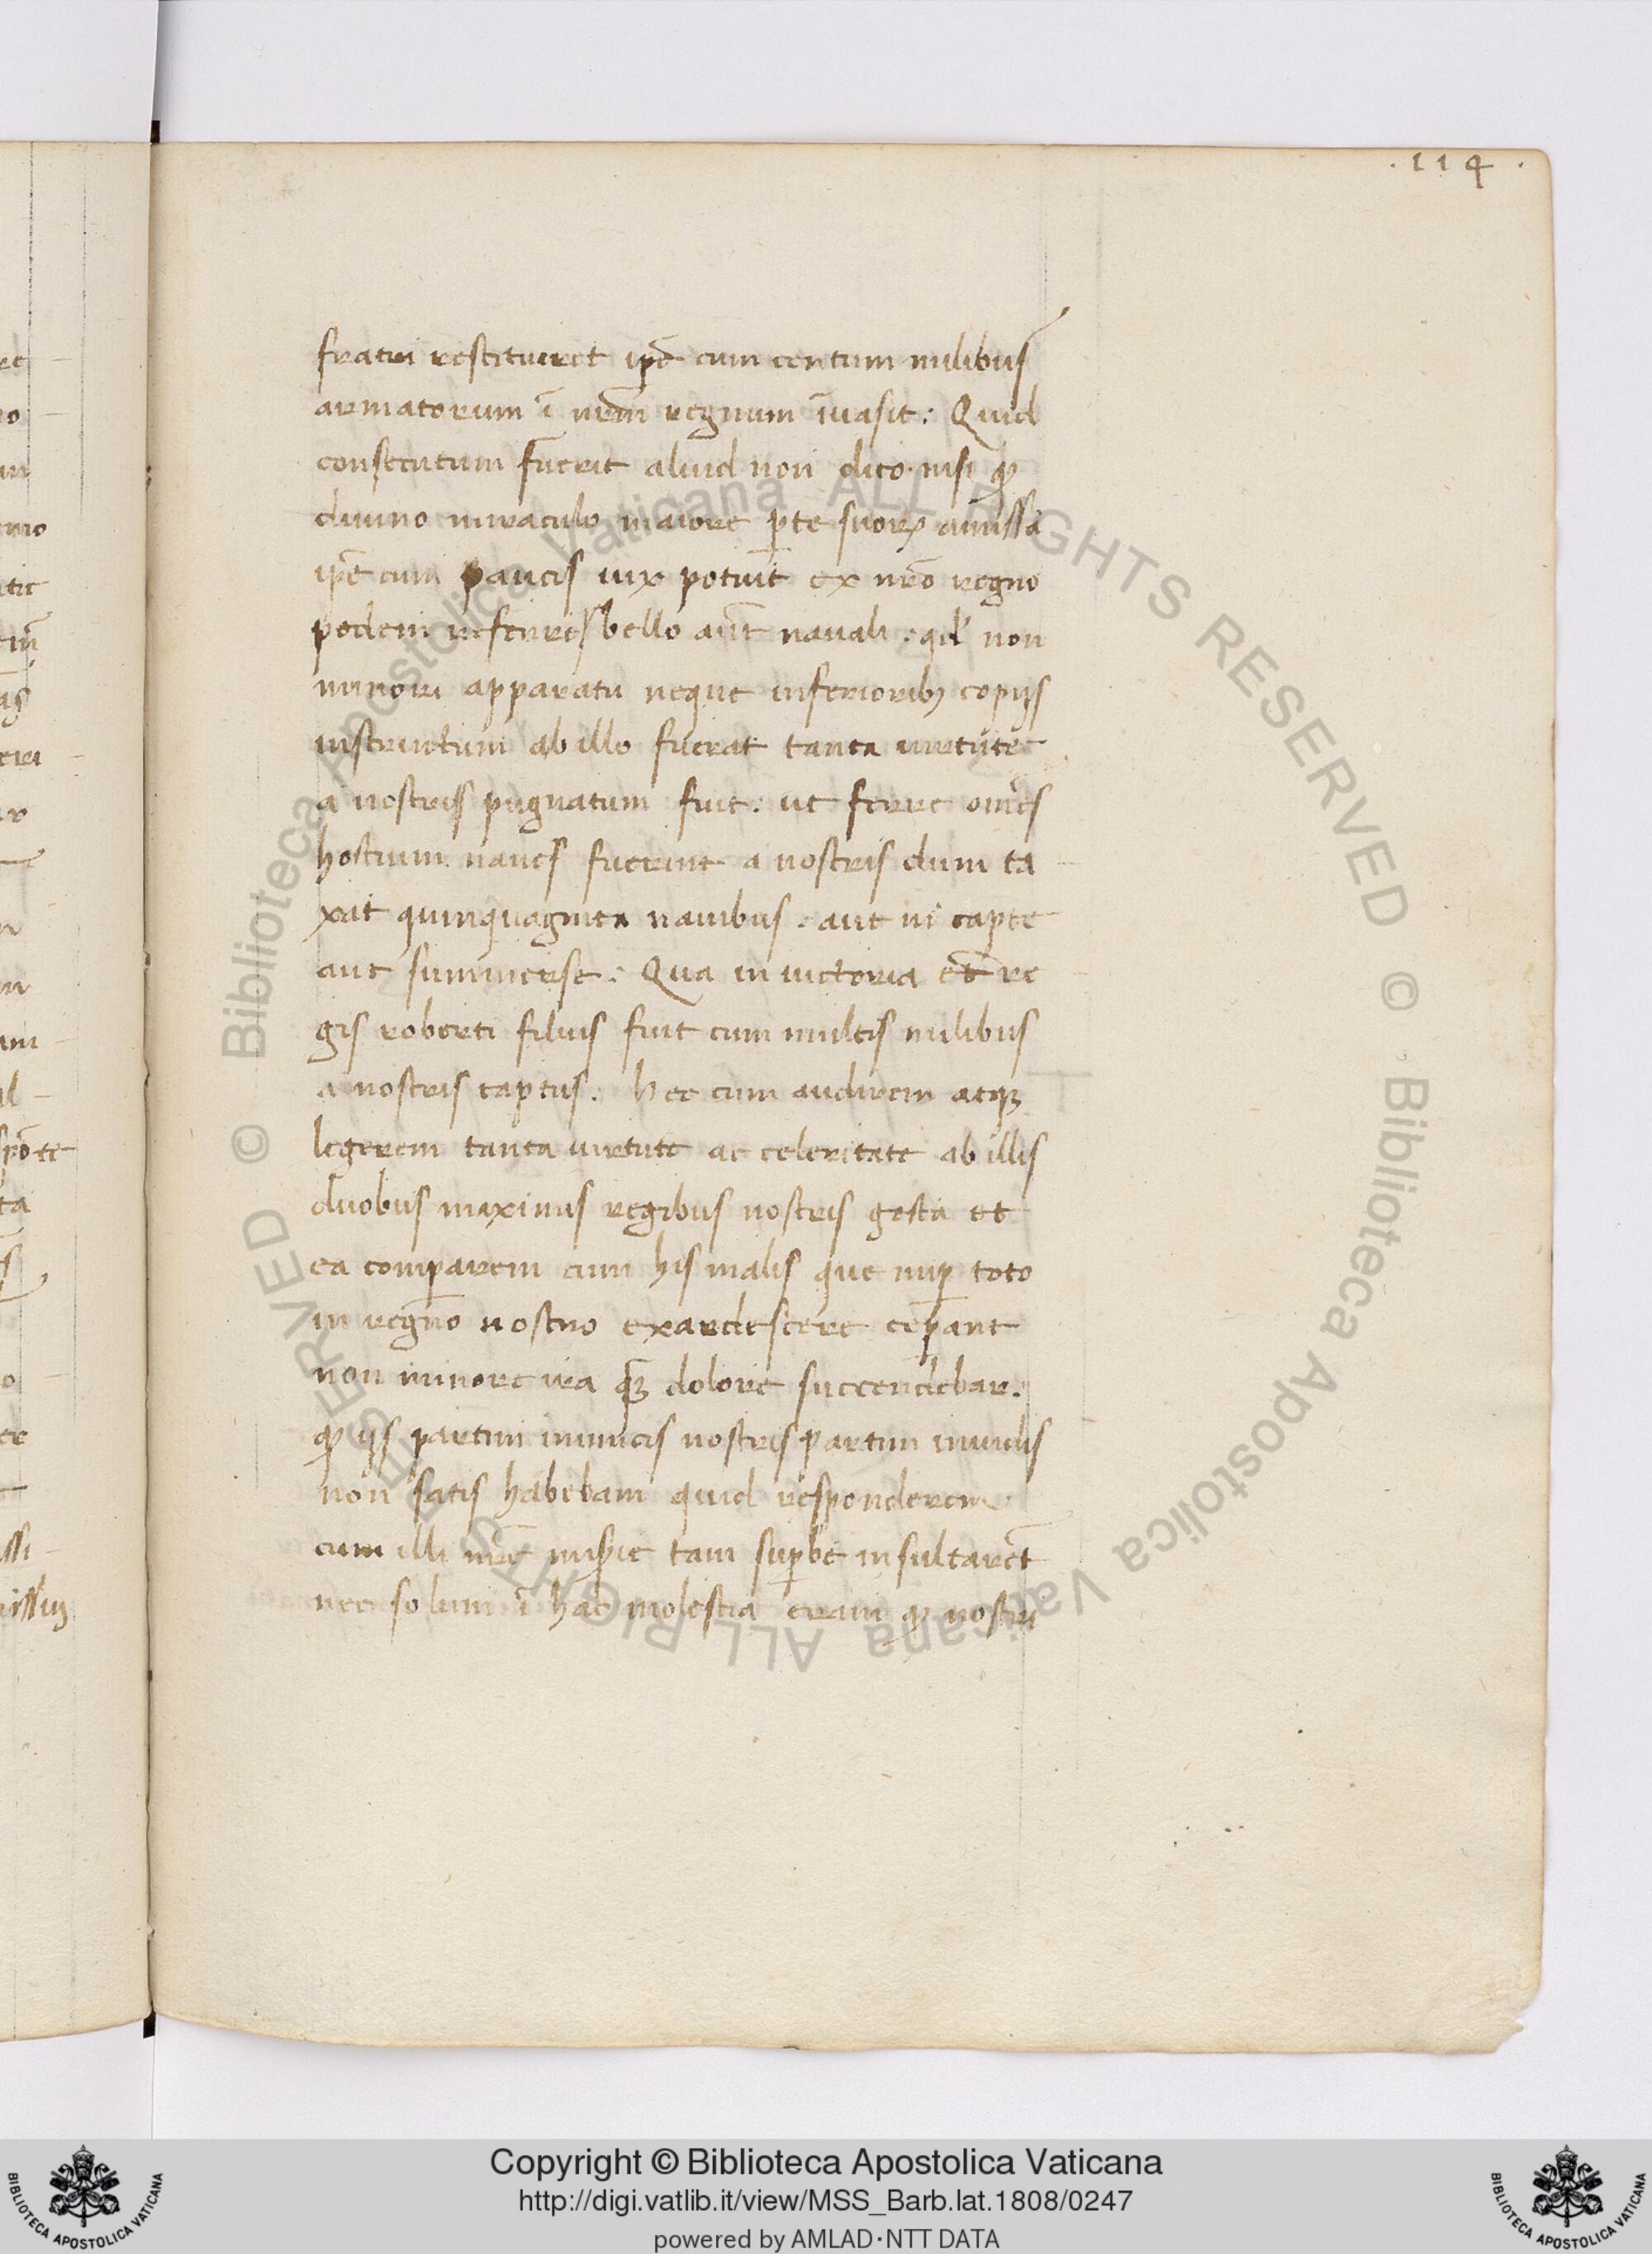 .114.
fratri restitueret ip̄e cum centum milibus
armatorum ī nr̄m regnum īuasit: Quid
consecutum fuerit aliud non dico. nisi ꝙ
diuino miraculo maiore ꝑte suoꝝ amissa
ip̄e cum paucis uix potuit ex nr̄o regno
pedem referre/ bello aut̄ nauali. qd' non
minori apparatu neque inferiorib; copijs
instructum ab illo fuerat tanta uirtute
a nostris pugnatum fuit. ut ferre om̄es
hostium naues fuerint a nostris dum ta
xat quinquaginta nauibus. aut ui capte
aut summerse. Qua in uictoria et̄ re
gis roberti filius fuit cum multis milibus
a nostris captus. Hec cum audirem atqꝫ
legerem tanta uirtute ac celeritate ab illis
duobus maximis regibus nostris gesta et
ea compararem cum his malis que nuꝑ toto
in regno nostro exardescere ceꝑant
non minore ira qꝫ dolore succendebar.
ꝙ ijs partim inimicis nostris partim inuidis
non satis habebam quid responderem
cum illi nr̄e miserie tam suꝑbe insultarēt
nec solum ī hac molestia eram ꝙ nostri
Copyright © Biblioteca Apostolica Vaticana
http://digi.vatlib.it/view/MSS_Barb.lat.1808/0247
powered by AMLAD·NTT DATA
BIBLIOTECA APOSTOLICA VATICANA
BIBLIOTECA APOSTOLICA VATICANA
© Biblioteca Apostolica Vaticana ALL RIGHTS RESERVED
© Biblioteca Apostolica Vaticana ALL RIGHTS RESERVED